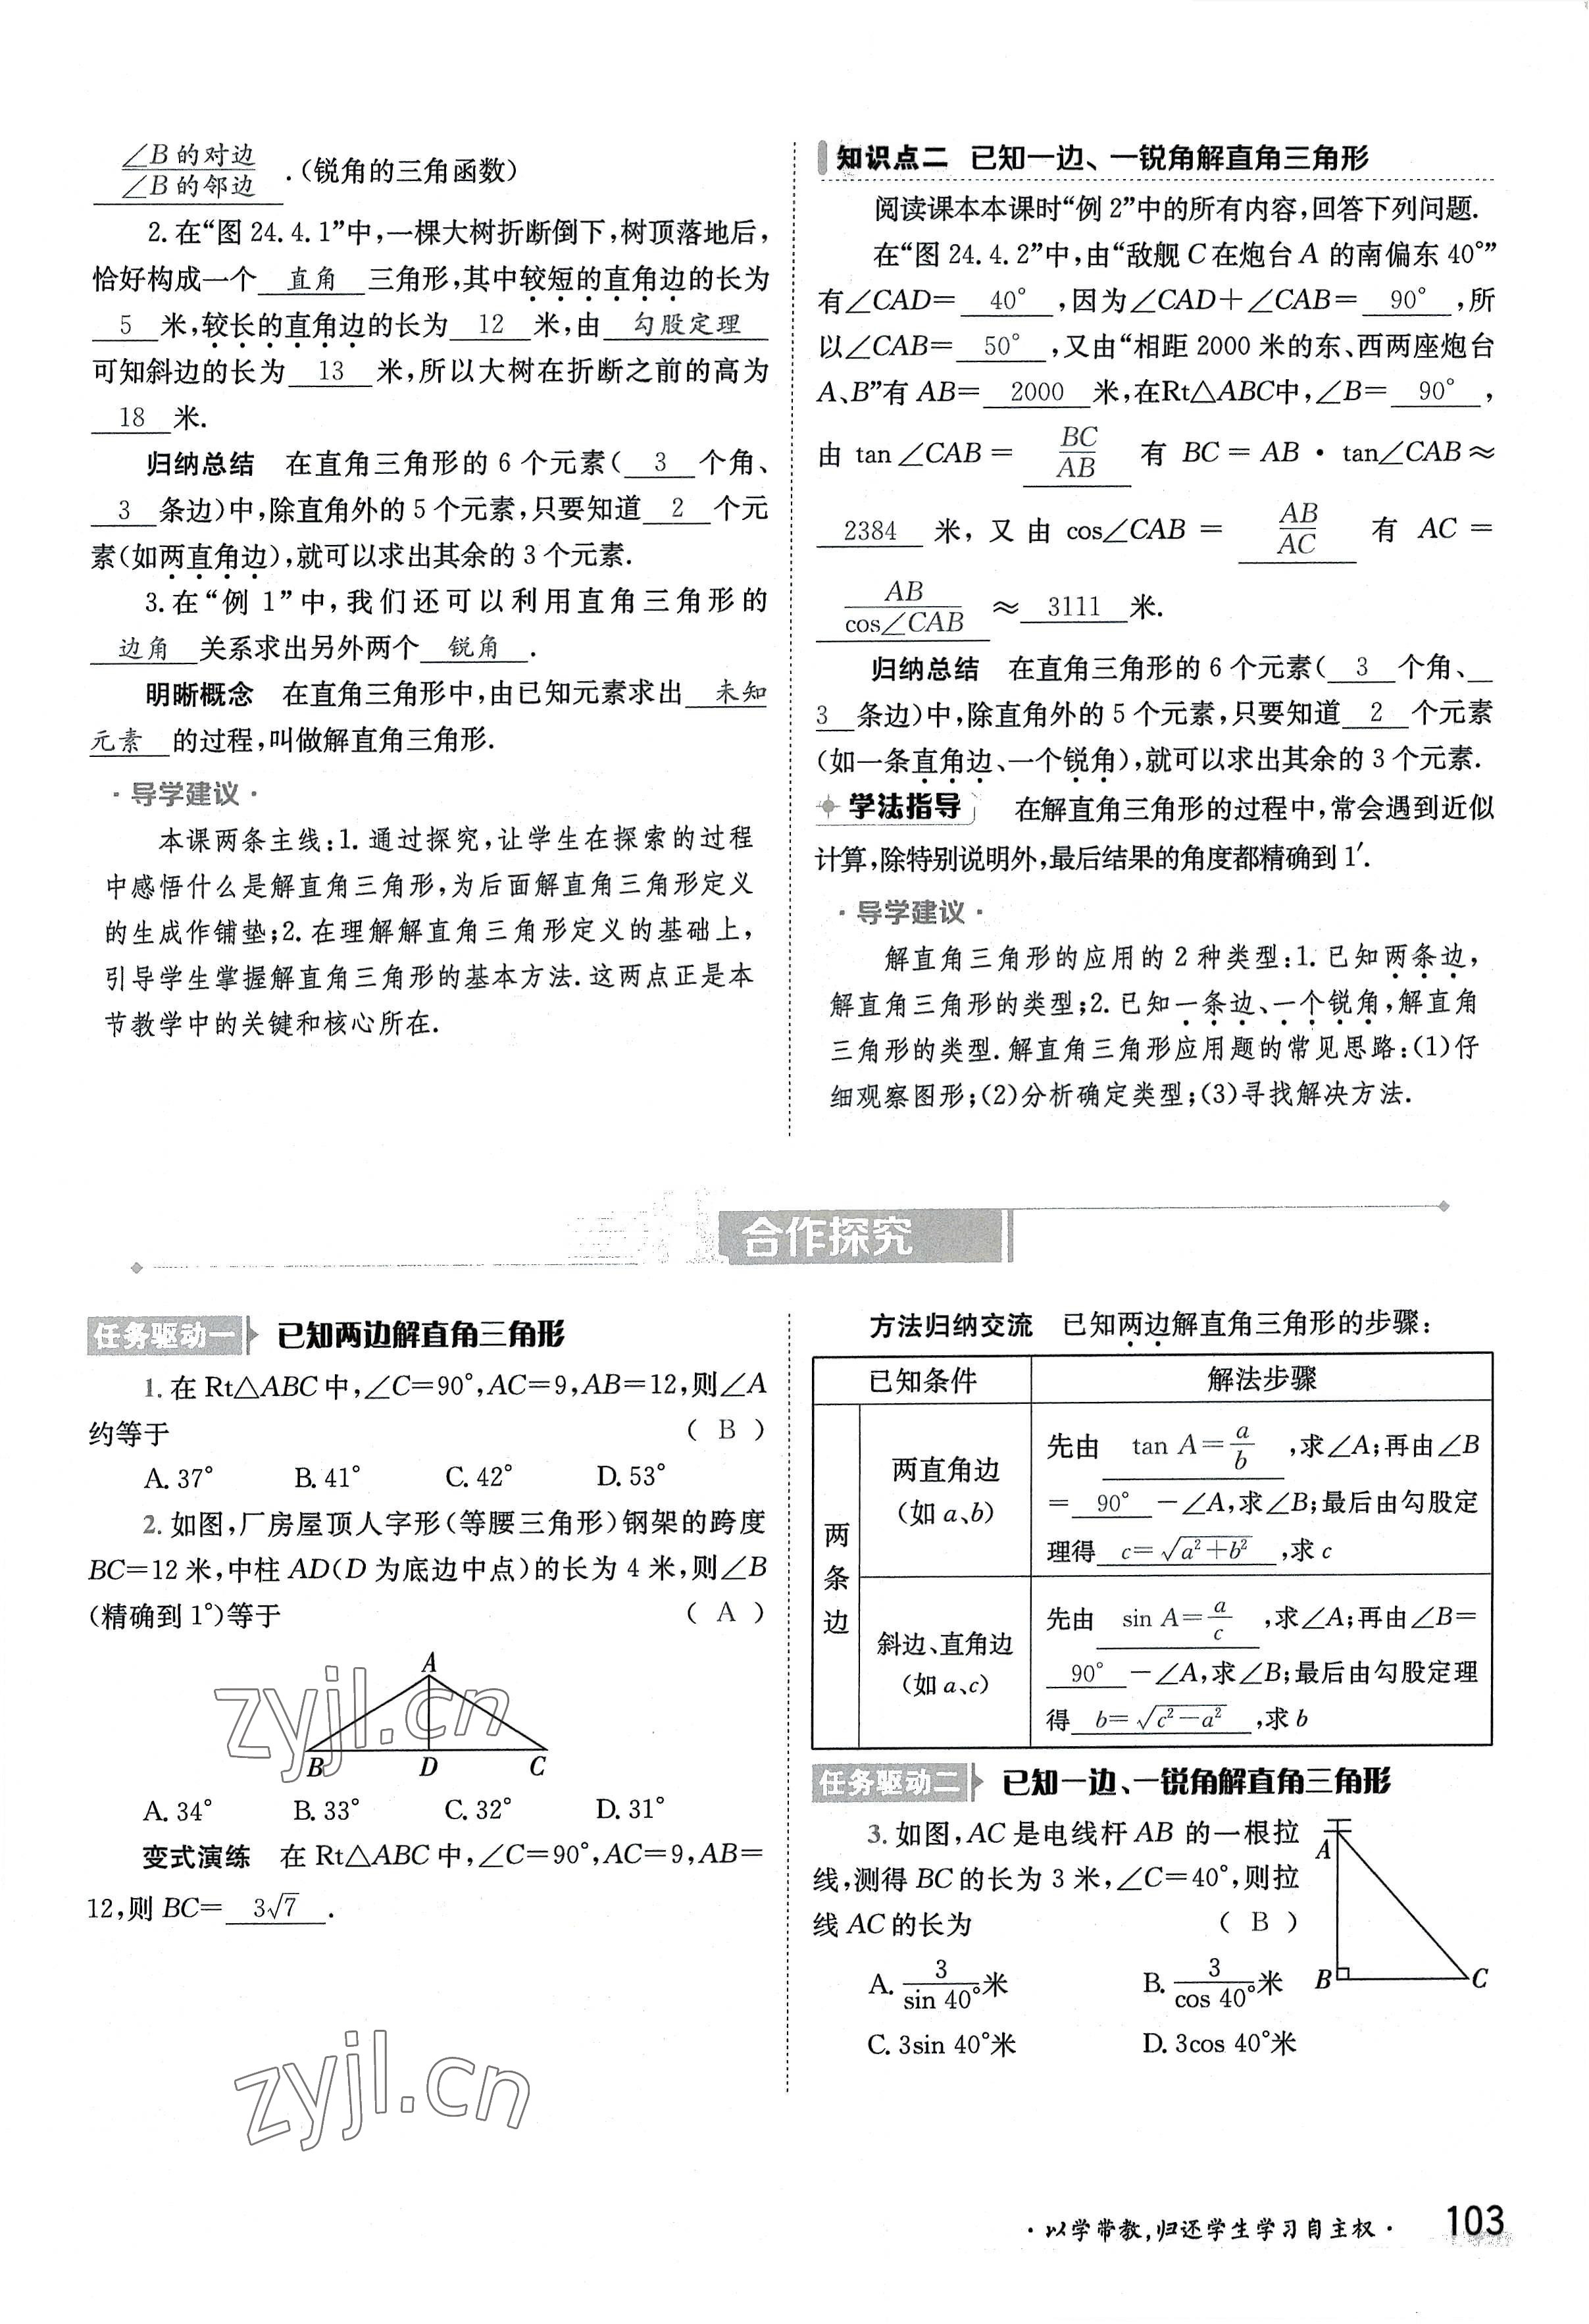 ∠B的对边/∠B的邻边.(锐角的三角函数)
2.在“图24.4.1”中,一棵大树折断倒下,树顶落地后,
恰好构成一个 直角 三角形,其中较短的直角边的长为
5 米,较长的直角边的长为 12 米,由 勾股定理
可知斜边的长为 13 米,所以大树在折断之前的高为
18 米.
归纳总结 在直角三角形的6个元素( 3 个角、
3 条边)中,除直角外的5个元素,只要知道 2 个元
素(如两直角边),就可以求出其余的3个元素.
3.在“例1”中,我们还可以利用直角三角形的
边角 关系求出另外两个 锐角 .
明晰概念 在直角三角形中,由已知元素求出 未知
元素 的过程,叫做解直角三角形.
·导学建议·
本课两条主线:1.通过探究,让学生在探索的过程
中感悟什么是解直角三角形,为后面解直角三角形定义
的生成作铺垫;2.在理解解直角三角形定义的基础上,
引导学生掌握解直角三角形的基本方法.这两点正是本
节教学中的关键和核心所在.
知识点二 已知一边、一锐角解直角三角形
阅读课本本课时“例2”中的所有内容,回答下列问题.
在“图24.4.2”中,由“敌舰C在炮台A的南偏东40°”
有∠CAD= 40° ,因为∠CAD+∠CAB= 90° ,所
以∠CAB= 50° ,又由“相距2000米的东、西两座炮台
A、B”有AB= 2000 米,在Rt△ABC中,∠B= 90° ,
由 tan∠CAB= BC/AB 有 BC=AB·tan∠CAB≈
2384 米,又由 cos∠CAB= AB/AC 有 AC=
AB/cos∠CAB ≈ 3111 米.
归纳总结 在直角三角形的6个元素( 3 个角、
3 条边)中,除直角外的5个元素,只要知道 2 个元素
(如一条直角边、一个锐角),就可以求出其余的3个元素.
学法指导 在解直角三角形的过程中,常会遇到近似
计算,除特别说明外,最后结果的角度都精确到1′.
·导学建议·
解直角三角形的应用的2种类型:1.已知两条边,
解直角三角形的类型;2.已知一条边、一个锐角,解直角
三角形的类型.解直角三角形应用题的常见思路:(1)仔
细观察图形;(2)分析确定类型;(3)寻找解决方法.
合作探究
任务驱动一 已知两边解直角三角形
1.在Rt△ABC中,∠C=90°,AC=9,AB=12,则∠A
约等于 ( B )
A.37° B.41° C.42° D.53°
2.如图,厂房屋顶人字形(等腰三角形)钢架的跨度
BC=12米,中柱AD(D为底边中点)的长为4米,则∠B
(精确到1°)等于 ( A )
A
B D C
zyjl.cn
A.34° B.33° C.32° D.31°
变式演练 在Rt△ABC中,∠C=90°,AC=9,AB=
12,则BC= 3√7 .
zyjl.cn
方法归纳交流 已知两边解直角三角形的步骤:
已知条件 解法步骤
两条边
两直角边
(如a、b)
先由 tan A=a/b ,求∠A;再由∠B
= 90° -∠A,求∠B;最后由勾股定
理得 c=√(a²+b²) ,求c
斜边、直角边
(如a、c)
先由 sin A=a/c ,求∠A;再由∠B=
90° -∠A,求∠B;最后由勾股定理
得 b=√(c²-a²) ,求b
任务驱动二 已知一边、一锐角解直角三角形
3.如图,AC是电线杆AB的一根拉
线,测得BC的长为3米,∠C=40°,则拉
线AC的长为 ( B )
A
B C
A. 3/sin 40°米 B. 3/cos 40°米
C.3sin 40°米 D.3cos 40°米
·以学带教,归还学生学习自主权· 103